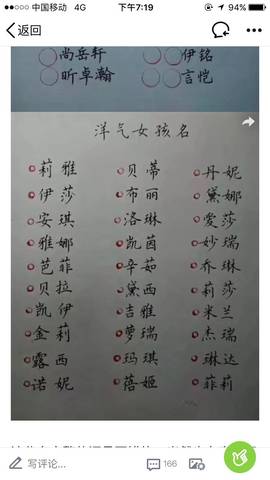 中国移动 4G 下午7:19 94%
返回
尚岳轩 伊铭
昕卓瀚 言恺
洋气女孩名
莉雅 贝蒂 丹妮
伊莎 布丽 黛娜
安琪 洛琳 爱莎
雅娜 凯茵 妙瑞
芭菲 辛茹 乔琳
贝拉 黛西 莉莎
凯伊 吉雅 米兰
金莉 萝瑞 杰瑞
露西 玛琪 琳达
诺妮 蓓姬 菲莉
写评论... 166